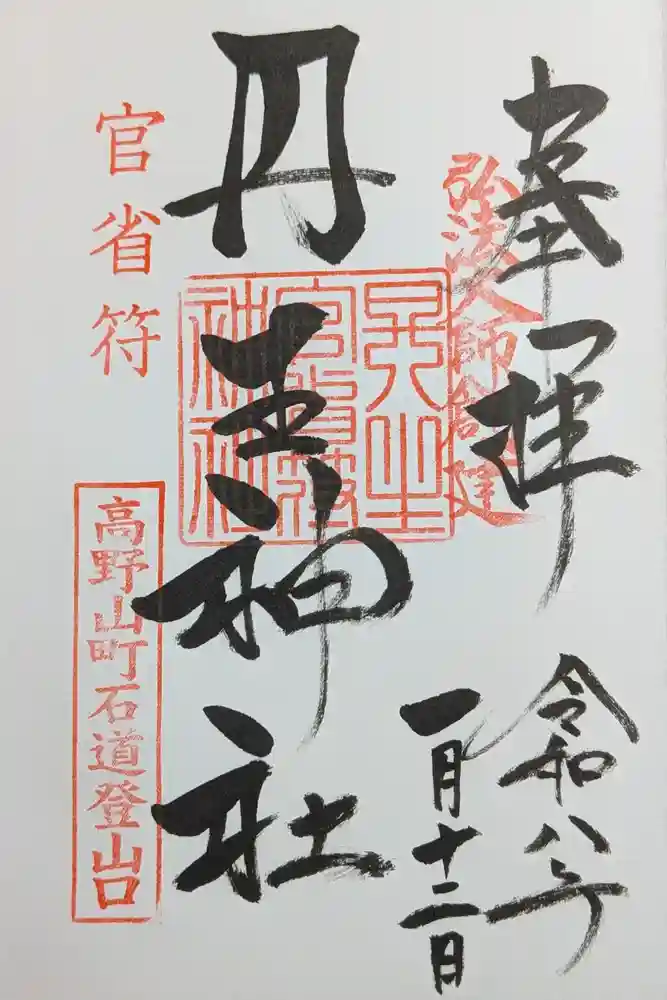 奉拝
弘法大師創建
令和八年
一月十二日
丹生神社
丹生
官省符
神社
官省符
高野山町石道登山口